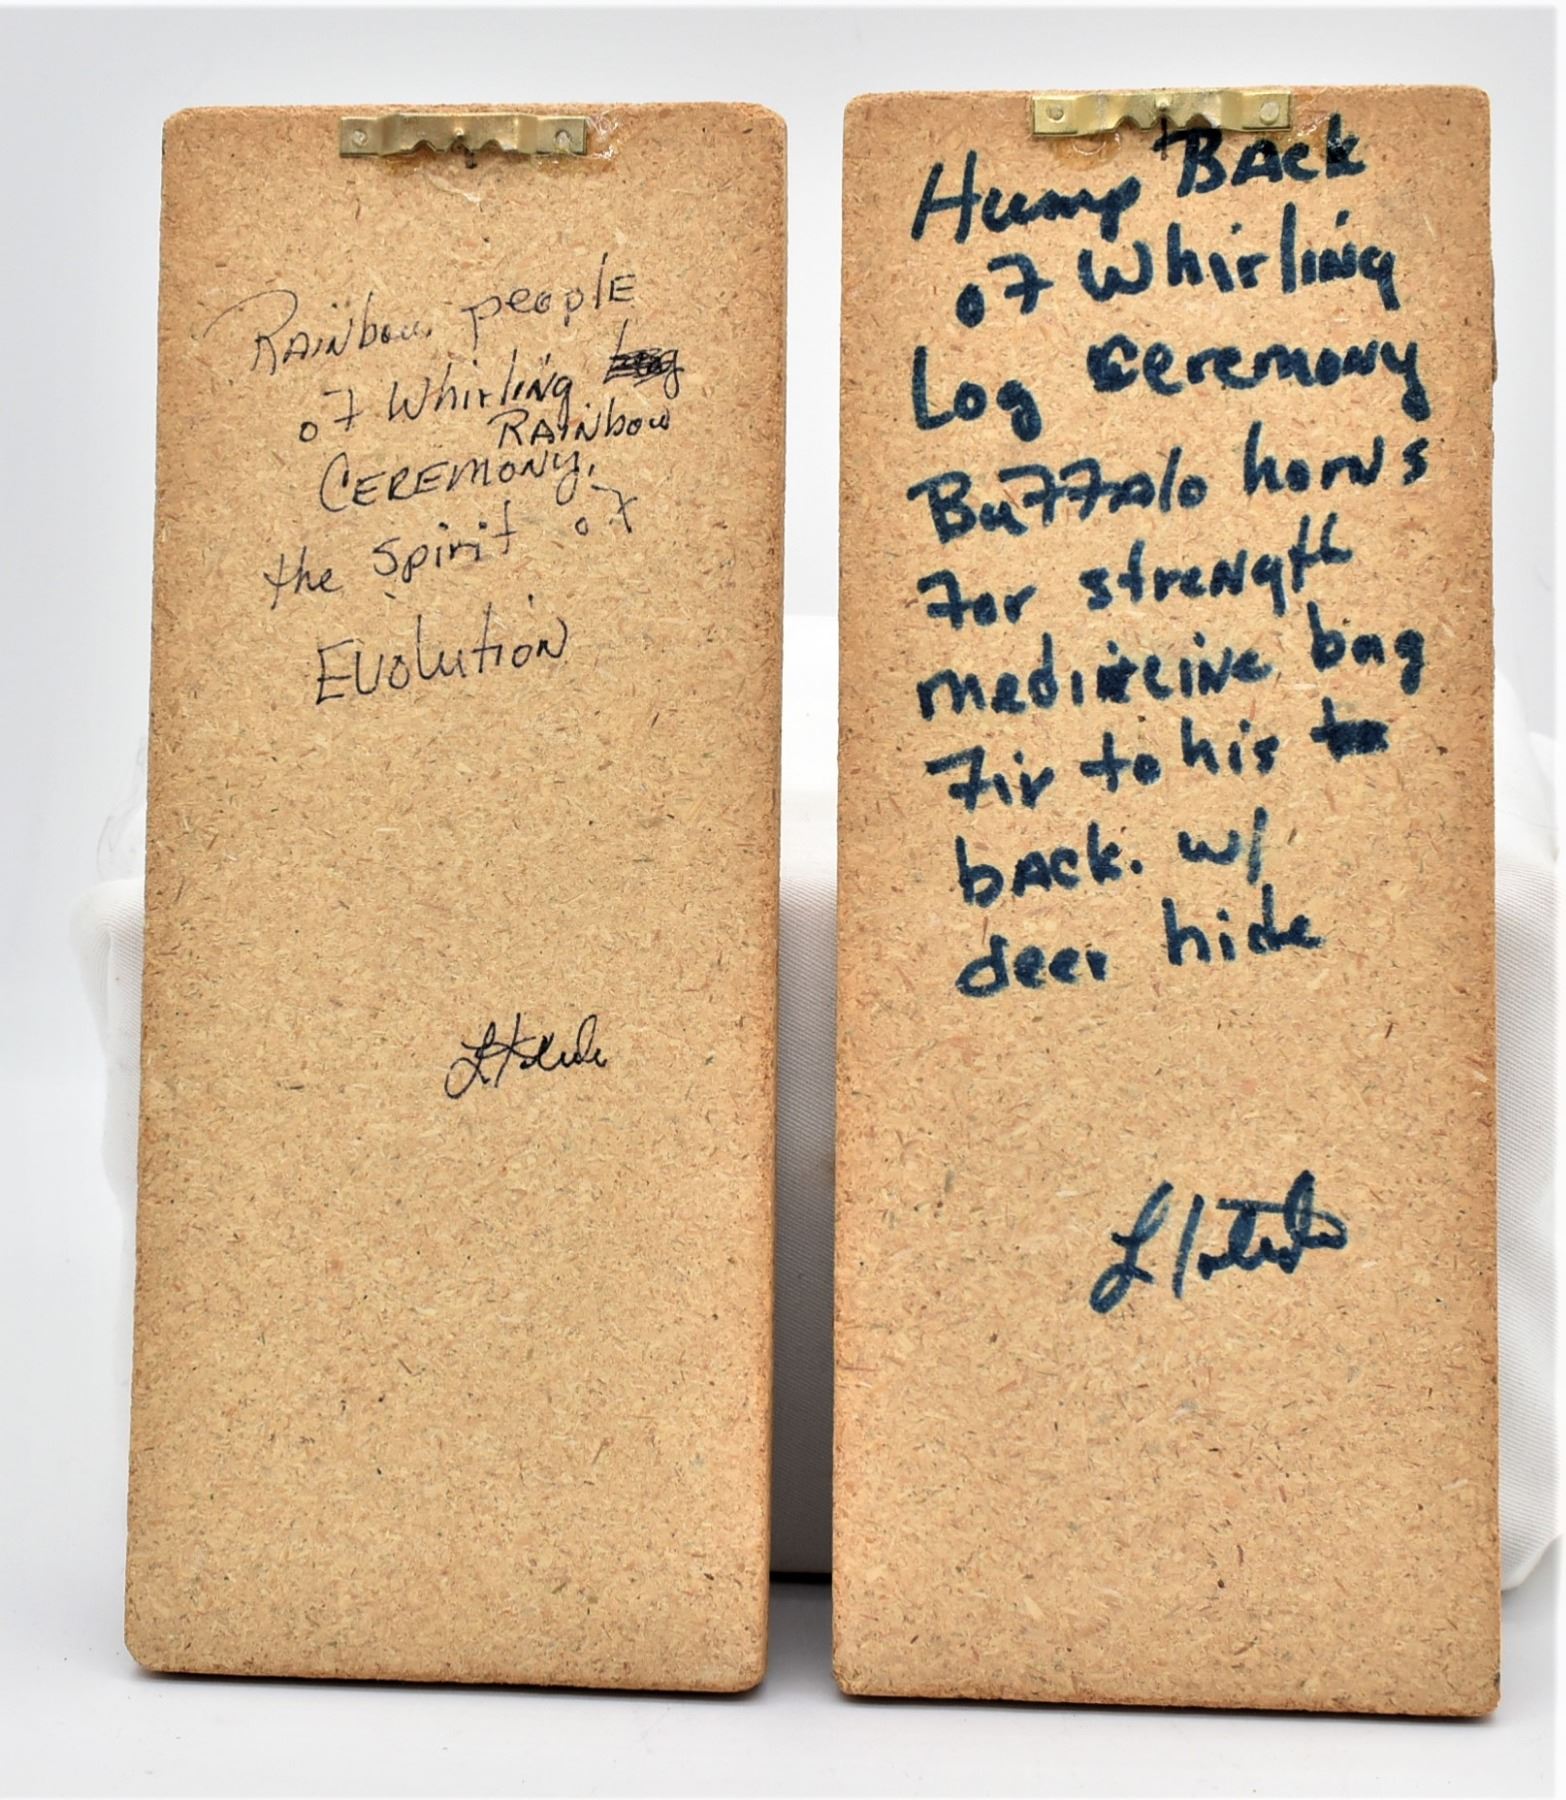 RAiNbow people
of Whirling
RAiNbow
CEREMONY.
the Spirit of
Evolution
Hump BAck
of Whirling
Log ceremony
Buffalo horns
for strength
medicine bag
fir to his
bAck. w/
deer hide